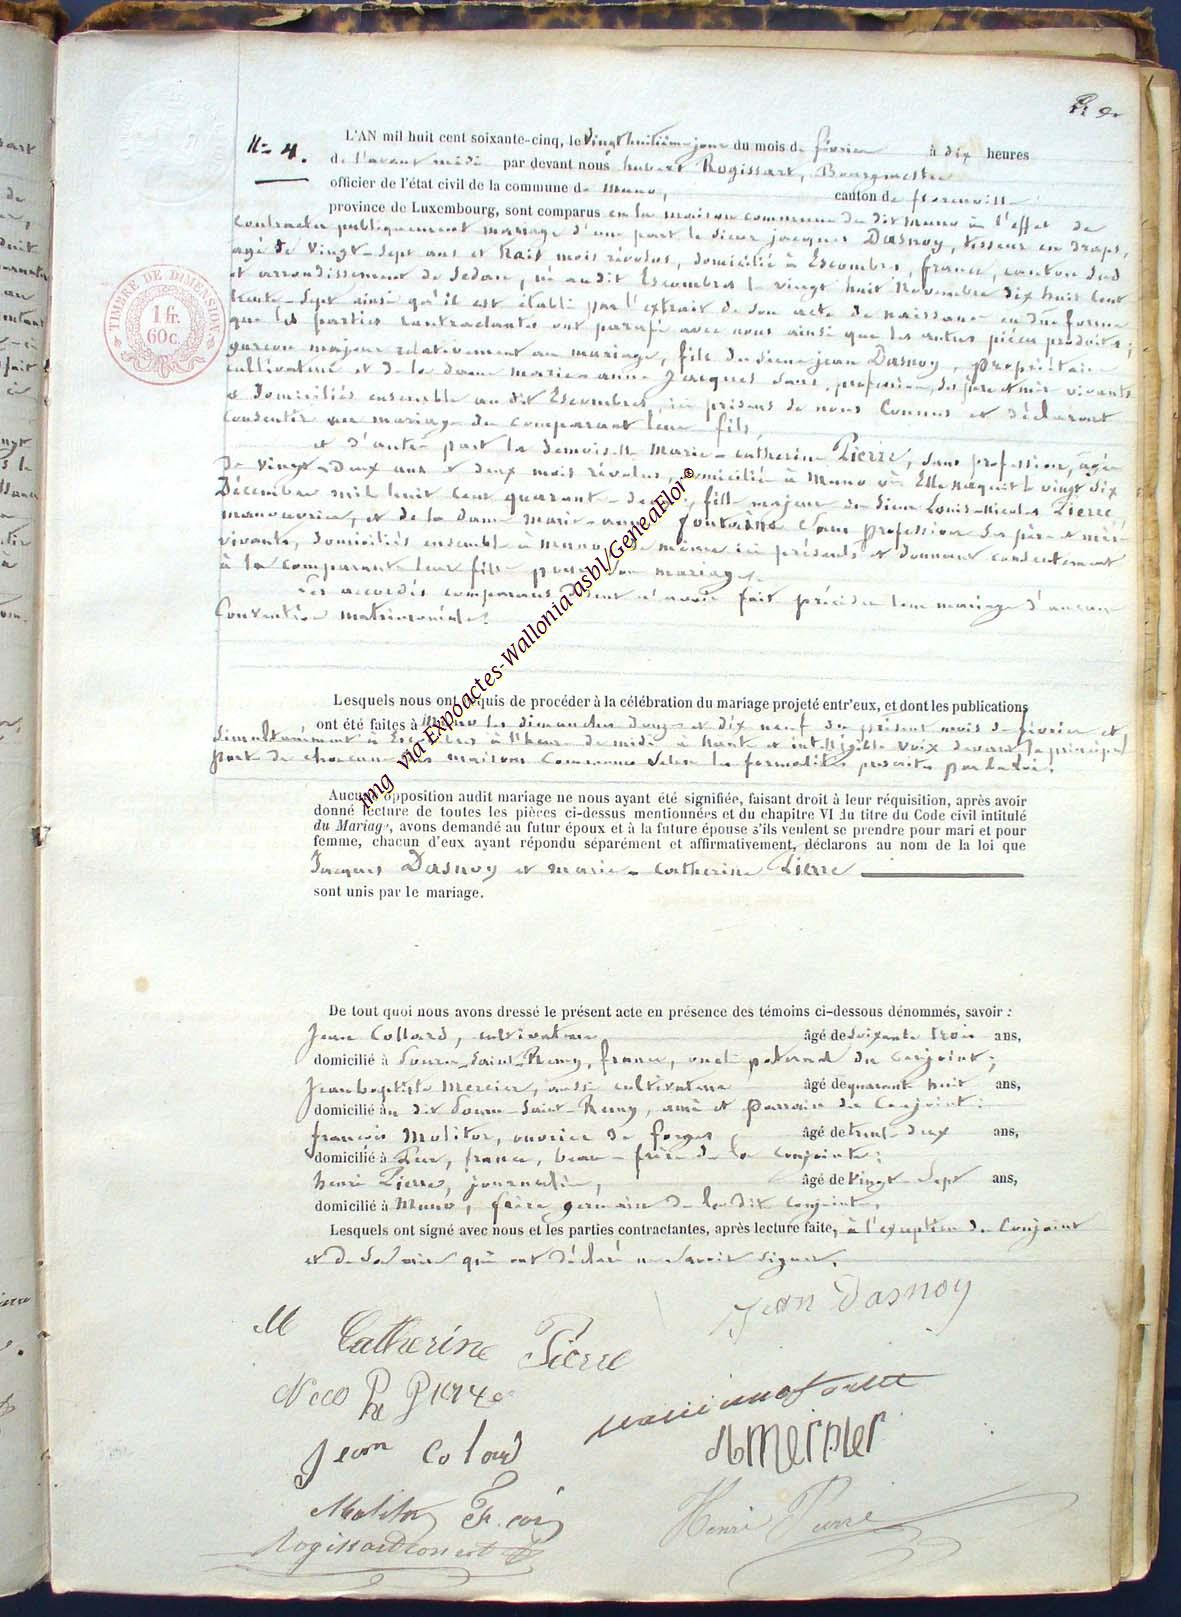 N° 4.
L'AN mil huit cent soixante-cinq, le vingt huitième jour du mois de février à dix heures
de l'avant midi par devant nous hubert Rogissart, Bourgmestre
officier de l'état civil de la commune de Muno, canton de florenville
province de Luxembourg, sont comparus en la maison commune du dit Muno à l'effet de
contracter publiquement mariage d'une part le sieur jacques Dasnoy, tisseur en draps,
agé de vingt-sept ans et trois mois révolus, domicilié à Escombres, france, canton sud
et arrondissement de Sedan, né au dit Escombres le vingt huit Novembre dix huit cent
trente-sept ainsi qu'il est établi par l'extrait de son acte de naissance en dûe forme
que les parties contractantes ont parafé avec nous ainsi que les autres pièces produites;
garçon majeur relativement au mariage, fils du sieur jean Dasnoy, propriétaire
cultivateur et de la dame marie-anne jacques sans profession, ses père et mère vivants
et domiciliés ensemble au dit Escombres, ici présens de nous connus et déclarant
consentir au mariage du comparant leur fils,
et d'autre part la demoiselle Marie-catherine Pierre, sans profession, agée
de vingt-deux ans et deux mois révolus, domiciliée à Muno où Elle naquit le vingt dix
Décembre mil huit cent quarante-deux, fille majeure du sieur Louis-Nicolas Pierre
manouvrier, et de la dame Marie-anne fontaine sans profession ses père et mère
vivants, domiciliés ensemble à Muno, de même ici présents et donnant consentement
à la comparante leur fille pour son mariage.
Les accordés comparans disent n'avoir fait précéder leur mariage d'aucune
Convention matrimoniale.
Lesquels nous ont requis de procéder à la célébration du mariage projeté entr'eux, et dont les publications
ont été faites à Muno les dimanches douze et dix neuf du présent mois de février et
simultanément à Escombres à l'heure de midi à haute et intelligible voix devant la principale
porte de chacune des maisons Communes selon les formalités prescrites par la loi.
Aucune opposition audit mariage ne nous ayant été signifiée, faisant droit à leur réquisition, après avoir
donné lecture de toutes les pièces ci-dessus mentionnées et du chapitre VI du titre du Code civil intitulé
du Mariage, avons demandé au futur époux et à la future épouse s'ils veulent se prendre pour mari et pour
femme, chacun d'eux ayant répondu séparément et affirmativement, déclarons au nom de la loi que
Jacques Dasnoy et Marie-Catherine Pierre
sont unis par le mariage.
De tout quoi nous avons dressé le présent acte en présence des témoins ci-dessous dénommés, savoir :
Jean Collard, cultivateur âgé de soixante trois ans,
domicilié à Pourru-Saint-Remy, france, oncle paternel du conjoint;
Jeanbaptiste Mercier, aussi cultivateur âgé de quarant huit ans,
domicilié au dit Pourru-Saint-Remy, ami et parrain du Conjoint;
françois Molitor, ouvrier de forges âgé de trente-deux ans,
domicilié à france, beau-frère de la conjointe;
henri Pierre, journalier, âgé de vingt-sept ans,
domicilié à Muno, frère germain de la dite conjointe.
Lesquels ont signé avec nous et les parties contractantes, après lecture faite, à l'exception du Conjoint
et de sa mère qui ont déclaré ne savoir signer.
Jean Dasnoy
M Catherine Pierre
Jean Colard
Mercier
Molitor
Henri Pierre
TIMBRE DE DIMENSION
1 fr.
60 c.
img via Expoactes-Wallonia-asbl/GeneaFlor®